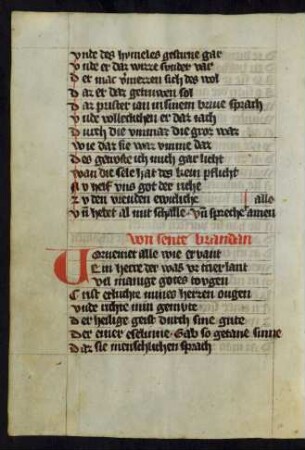 Vnde des hymeles gesturne gar
Vnde er dar wirre sunder var
Der mac vmerren sich des wol
Dar et dar getruwen sol
Dar prister ian in sinem briue sprach
Vnde volleclichen er dar iach
Durch die vunnar die groz war
Wie dar sie war vnme dar
Des geweste ich nuch gar licht
Wan die sele hat des kein pflicht
Nv helf vns got der riche
Zv den vreuden ewicliche alle
Vn hebet al mit schalle vn spreche amen
Von sente brandan
Vernemet alle wie er vant
Ein herre der was vz irlant
Vel manige gotes tovgen
Crist erluchte mines herzen ougen
Vnde richte min gemute
Der heilige geist durch sine gute
Der einer eselinne Gab so getane sinne
Daz sie menschlichen sprach